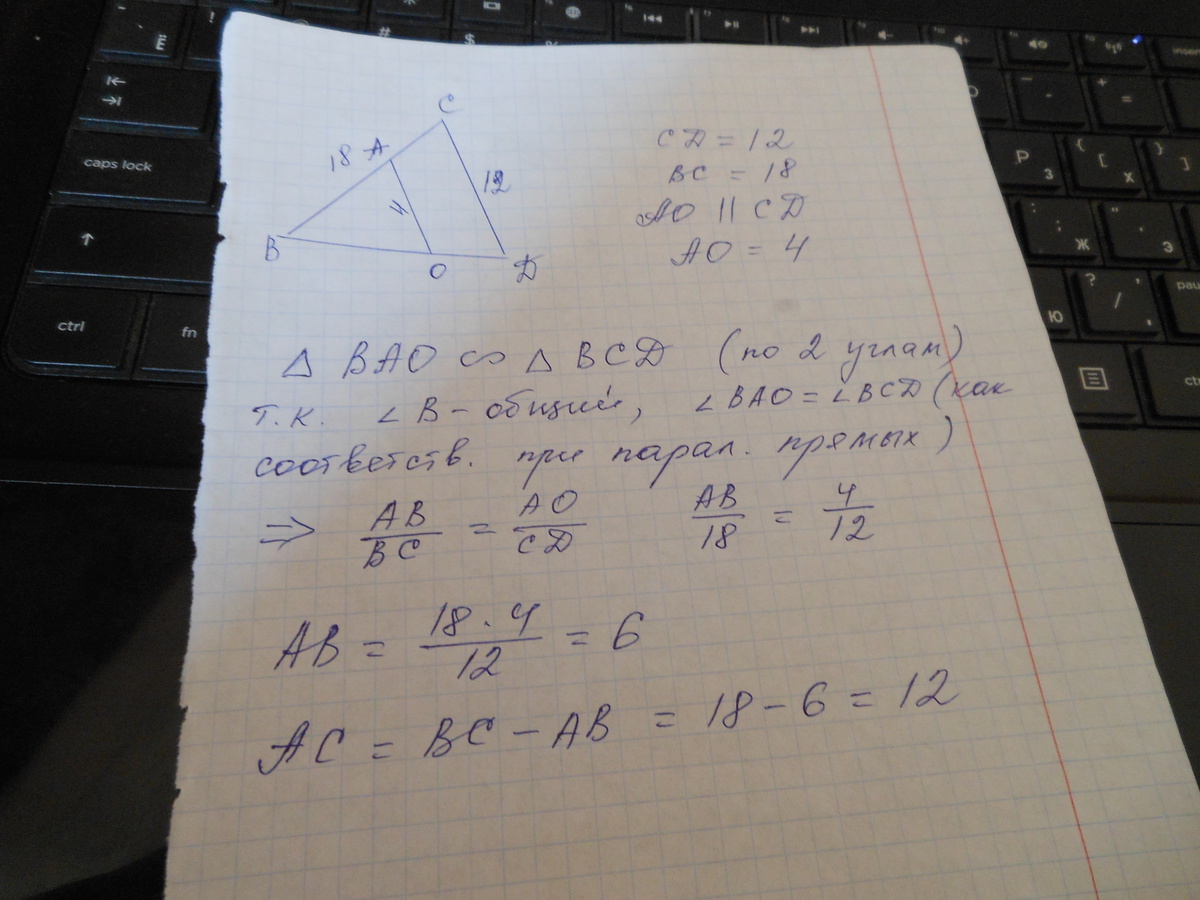 caps lock
ctrl
fn
C
18 A
12
4
B
O
D
CD = 12
BC = 18
AO || CD
AO = 4
△ BAO ∽ △ BCD (по 2 углам)
т.к. ∠B - общий, ∠BAO = ∠BCD (как
соответств. при парал. прямых)
⇒ AB/BC = AO/CD AB/18 = 4/12
AB = 18 · 4/12 = 6
AC = BC - AB = 18 - 6 = 12